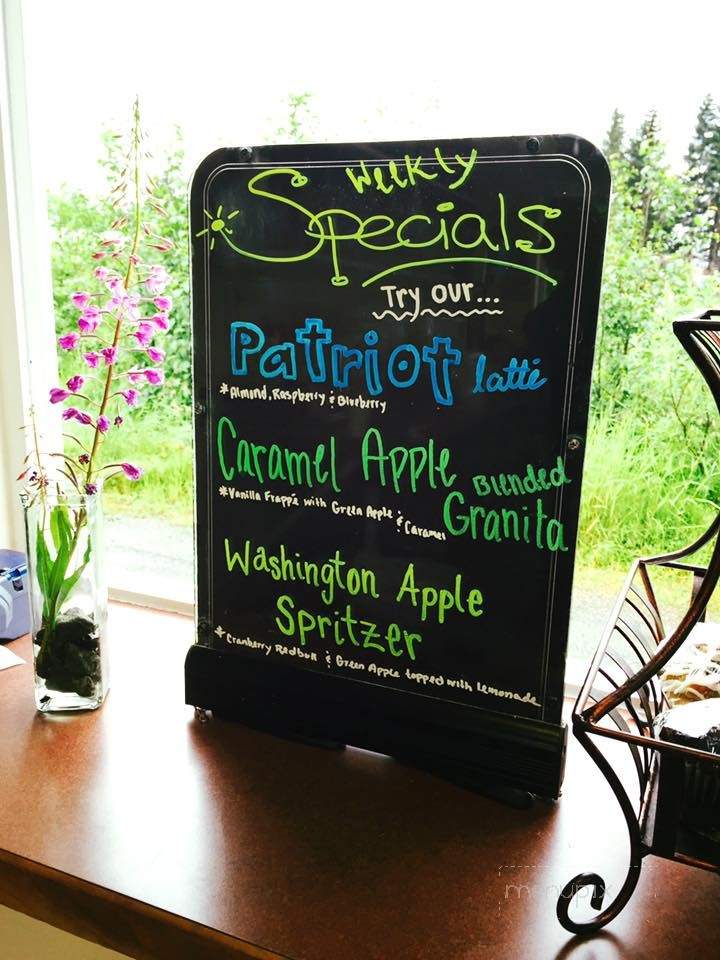 Weekly
Specials
Try our...
Patriot latté
*Almond, Raspberry & Blueberry
Caramel Apple Blended
Granita
*Vanilla Frappé with Green Apple & Caramel
Washington Apple
Spritzer
*Cranberry Redbull & Green Apple topped with Lemonade
menupix